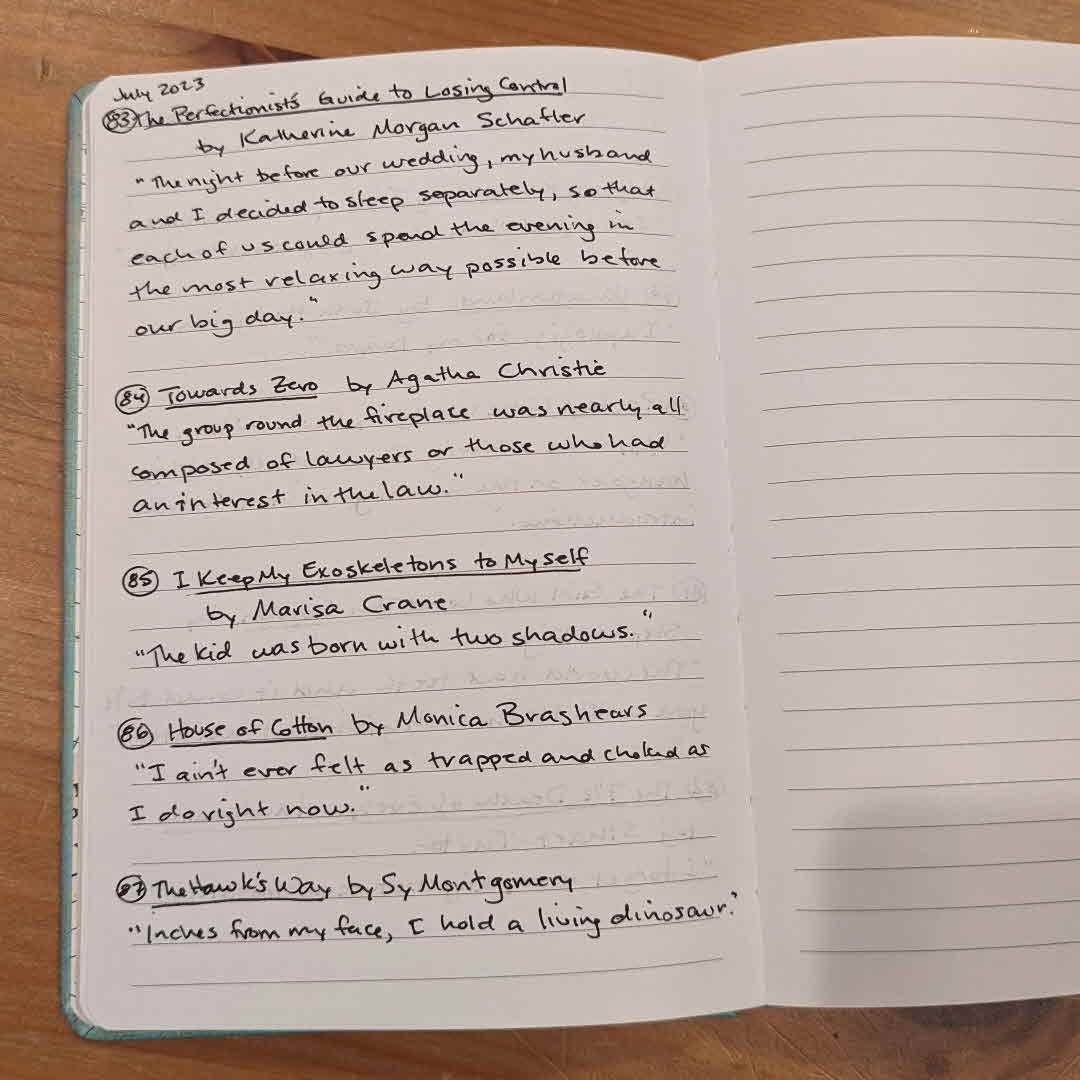 July 2023
83 The Perfectionist's Guide to Losing Control
by Katherine Morgan Schafler
"The night before our wedding, my husband
and I decided to sleep separately, so that
each of us could spend the evening in
the most relaxing way possible before
our big day."
84 Towards Zero by Agatha Christie
"The group round the fireplace was nearly all
composed of lawyers or those who had
an interest in the law."
85 I Keep My Exoskeletons to Myself
by Marisa Crane
"The kid was born with two shadows."
86 House of Cotton by Monica Brashears
"I ain't ever felt as trapped and choked as
I do right now."
87 The Hawk's Way by Sy Montgomery
"Inches from my face, I hold a living dinosaur."